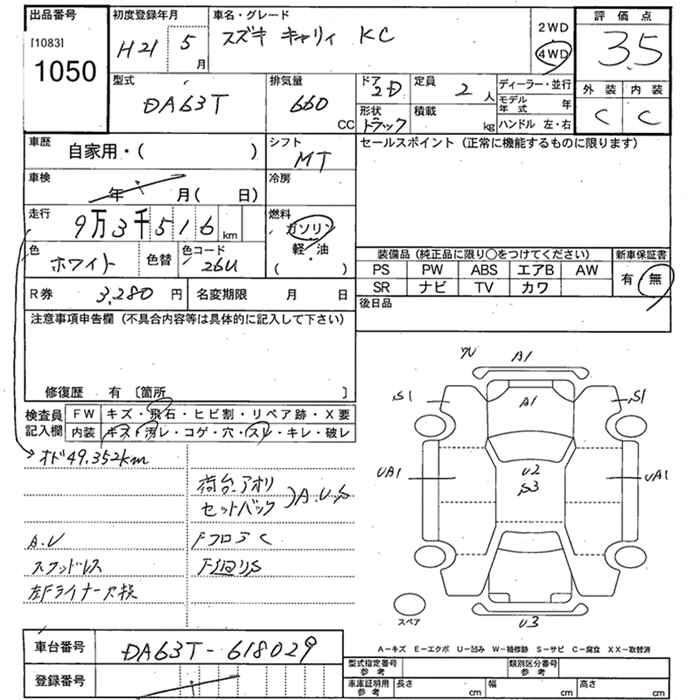 出品番号
[1083]
1050
初度登録年月
H21 5 月
車名・グレード
スズキ キャリィ KC
2WD
4WD
評価点
3.5
外装 内装
C C
型式
DA63T
排気量
660 CC
ドア
2D
形状
トラック
定員
2 人
積載
kg
ディーラー・並行
モデル年式 年
ハンドル 左・右
車歴
自家用・( )
シフト
MT
セールスポイント (正常に機能するものに限ります)
車検
年 月( 日)
冷房
走行
9万3千516 km
燃料
ガソリン
軽・油
( )
色
ホワイト
色替
色コード
26U
装備品 (純正品に限り○をつけてください)
新車保証書
PS PW ABS エアB AW
SR ナビ TV カワ
有 無
R券 3,280 円
名変期限 月 日
後日品
注意事項申告欄 (不具合内容等は具体的に記入して下さい)
修復歴 有 〔箇所 〕
検査員記入欄
FW キズ・飛石・ヒビ割・リペア跡・X要
内装 キズ・汚レ・コゲ・穴・スレ・キレ・破レ
→オド49,352km
荷台.アオリ
セットバック
)A.U.S
A.U
FフロアC
スタッドレス
F下回りS
左Fライナー欠損
A1
S1 A1 S1
UA1 U2 UA1
S3
スペア
U3
A-キズ E-エクボ U-凹み W-補修跡 S-サビ C-腐食 XX-取替済
車台番号
DA63T-618029
登録番号
型式指定番号 参考
類別区分番号 参考
車庫証明用 参考
長さ cm 幅 cm 高さ cm